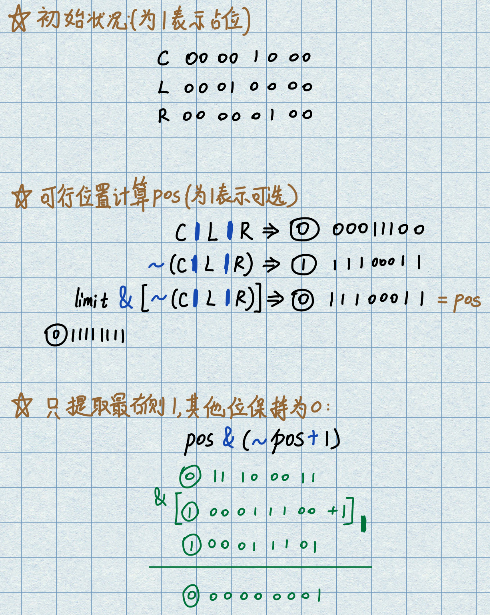 ☆ 初始状况:(为1表示占位)
C 00 00 1 0 00
L 00 01 0 0 00
R 00 00 0 1 00
☆ 可行位置计算pos(为1表示可选)
C | L | R ⇒ ⓪ 00011100
~(C | L | R) ⇒ ① 11100011
limit & [~(C | L | R)] ⇒ ⓪ 11100011 = pos
⓪11111111
☆ 只提取最右侧1,其他位保持为0:
pos & (~pos+1)
⓪ 11 10 00 11
& [① 00011100 +1]
① 00011101
⓪ 00000001